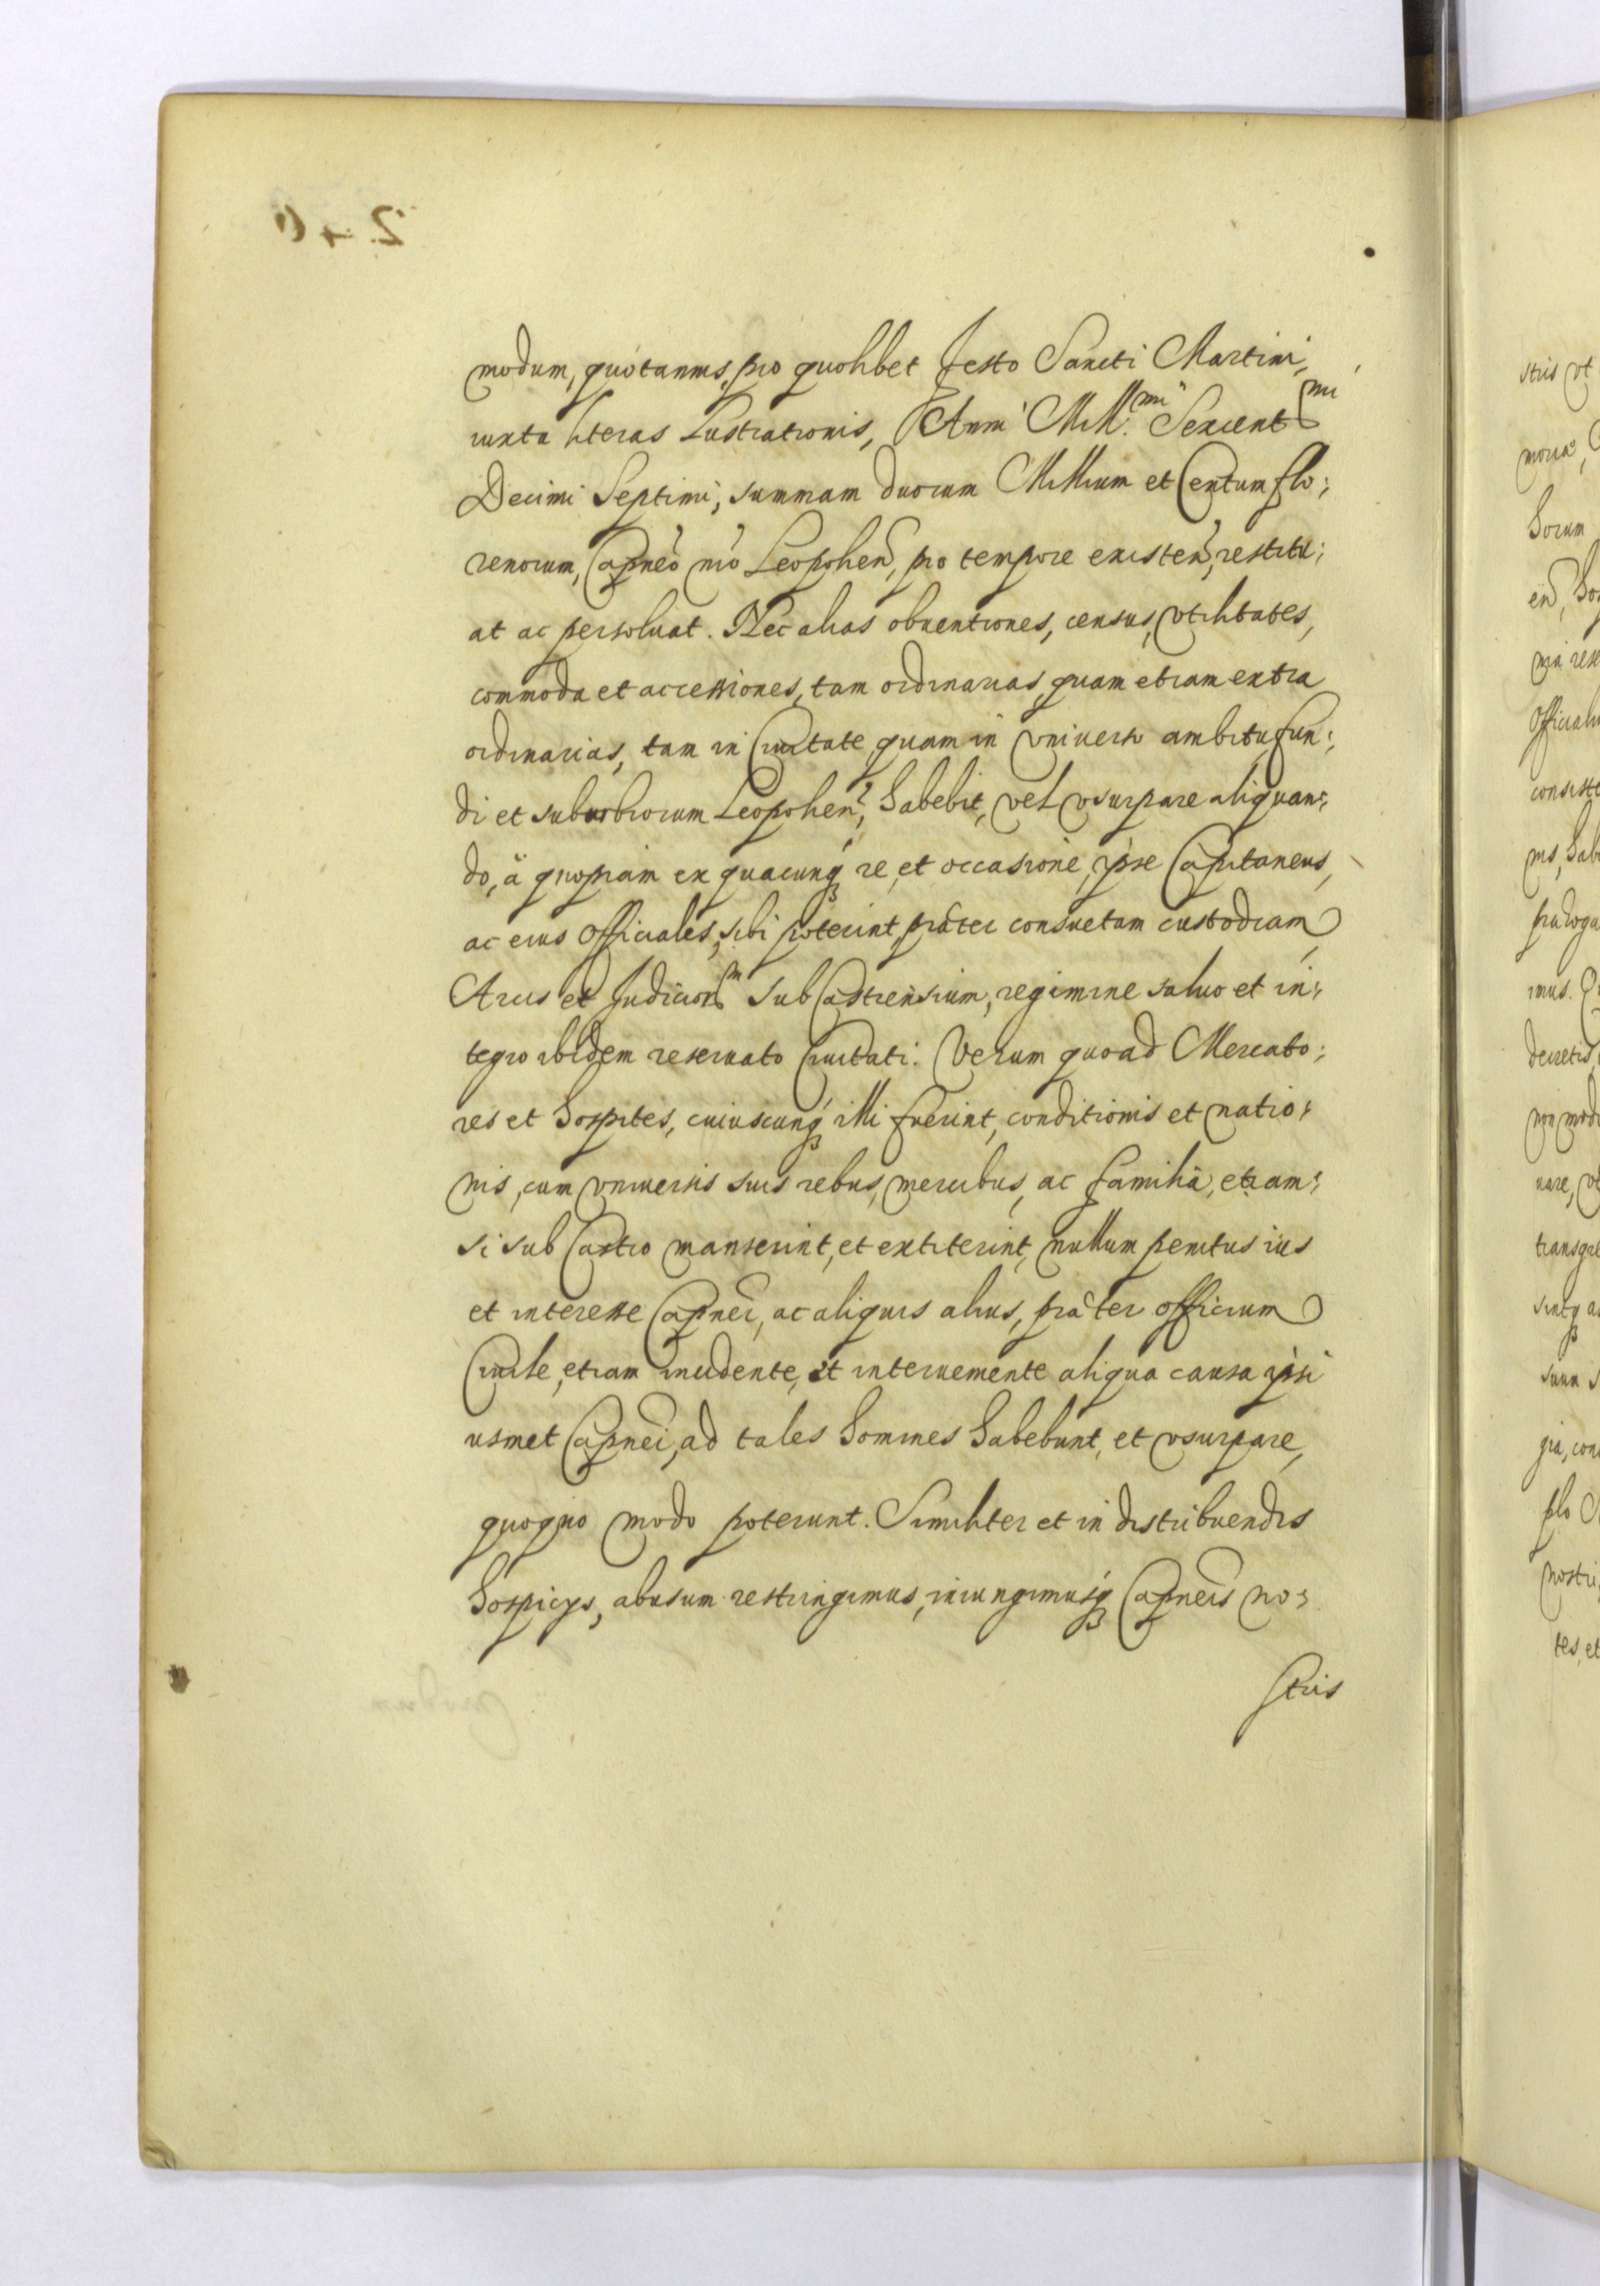 modum, quotannis, pro quolibet festo Sancti Martini,
iuxta literas Lustrationis, Anni Mill.mi Sexcent.mi
Decimi Septimi, summam duorum Millium et Centum flo:
renorum, Capneo nro Leopolien, pro tempore existen, restitu:
at ac persoluat. Nec alias obuentiones, census, vtilitates,
commoda et accessiones, tam ordinarias quam etiam extra
ordinarias, tam in Ciuitate quam in vniuerso ambitu fun:
di et suburbiorum Leopolien, habebit, vel vsurpare aliquan:
do, à quopiam ex quacunq re, et occasione, ipse Capitaneus,
ac eius Officiales, sibi poterint, præter consuetam custodiam
Arcis et Judicior Sub Castrensium, regimine saluo et in:
tegro ibidem reseruato Ciuitati. Verum quoad Mercato:
res et hospites, cuiuscunq illi fuerint, conditionis et natio:
nis, cum vniuersis suis rebus, mercibus, ac familia, etiam:
si sub Castro manserint, et extiterint, nullum penitus ius
et interesse Capnei, ac aliquis alius, præter officium
Ciuile, etiam incidente, et interueniente aliqua causa ipsi
usmet Capnei, ad tales homines habebunt, et vsurpare,
quoquo modo poterunt. Similiter et in distribuendis
hospicijs, abusum restringimus, iniungimusq Capneis no:
stris